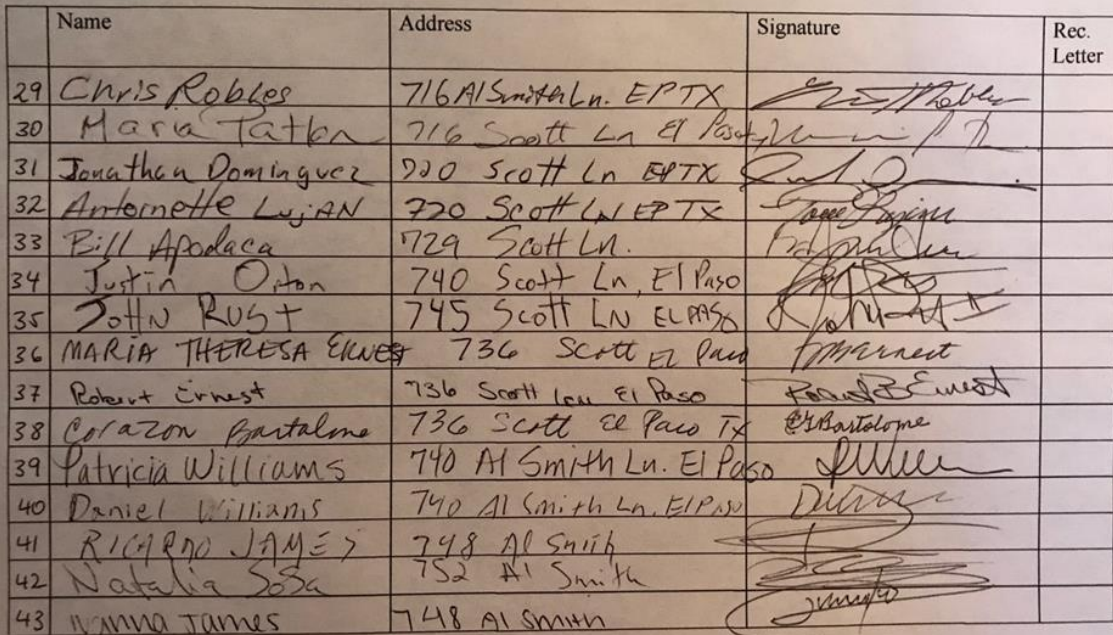 Name Address Signature Rec. Letter
29 Chris Robles 716 Al Smith Ln. EPTX
30 Maria Patton 716 Scott Ln El Paso,
31 Jonathan Dominguez 720 Scott Ln EPTX
32 Antoinette LujAN 720 Scott LN EP TX
33 Bill Apodaca 729 Scott Ln.
34 Justin Orton 740 Scott Ln, El Paso
35 JOHN RUST 745 Scott LN EL PASO
36 MARIA THERESA ERNEST 736 Scott El Paso
37 Robert Ernest 736 Scott El Paso Robert B Ernest
38 Corazon Bartolome 736 Scott El Paso TX Bartolome
39 Patricia Williams 740 Al Smith Ln. El Paso
40 Daniel Williams 740 Al Smith Ln. El Paso
41 RICARDO JAMES 748 Al Smith
42 Natalia Sosa 752 Al Smith
43 James 748 Al Smith